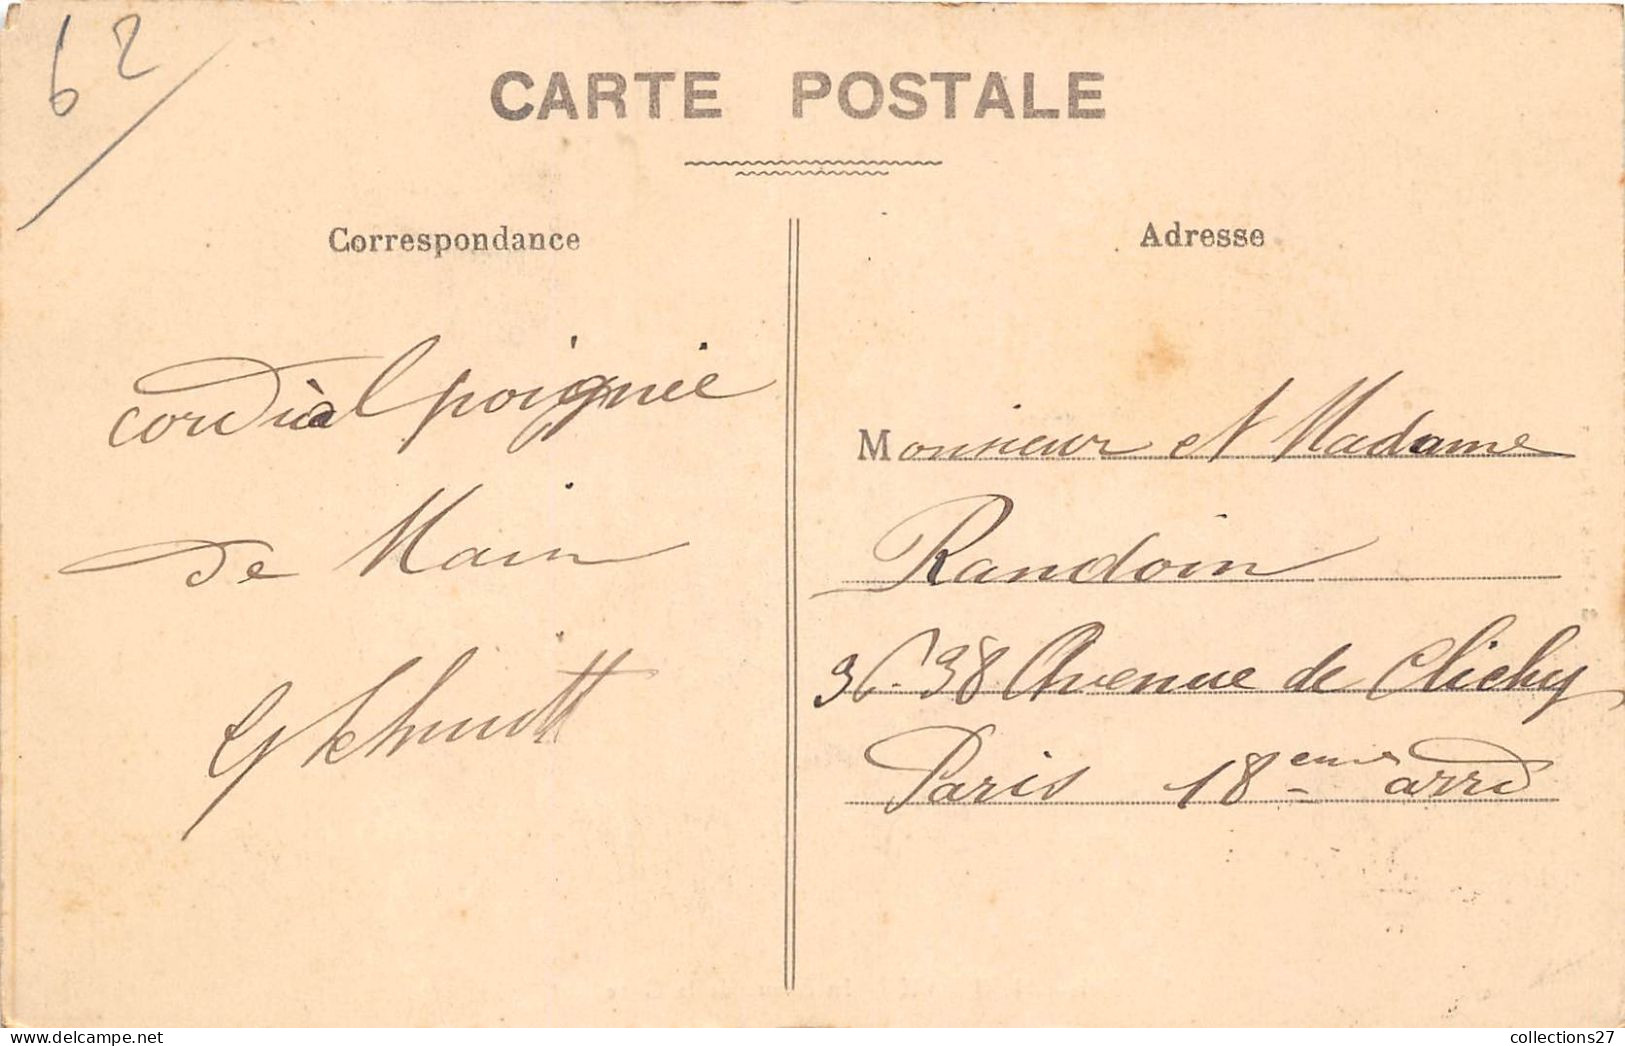 62
CARTE POSTALE
Correspondance
cordial poignée
de Main
Schmitt
Adresse
Monsieur et Madame
Randoin
36.38 Avenue de Clichy
Paris 18eme arrd
collections27